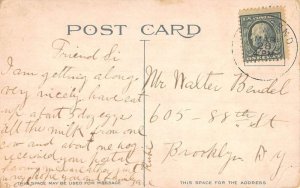 POST CARD
Friend Si
I am getting along
very nicely, have eat
up about 5 doz eggs
all the milk from one
cow and about one hog
received your postal
having
THIS SPACE MAY BE USED FOR MESSAGE
Mr Walter Bendel
605-88th St
Brooklyn N.Y.
THIS SPACE FOR THE ADDRESS